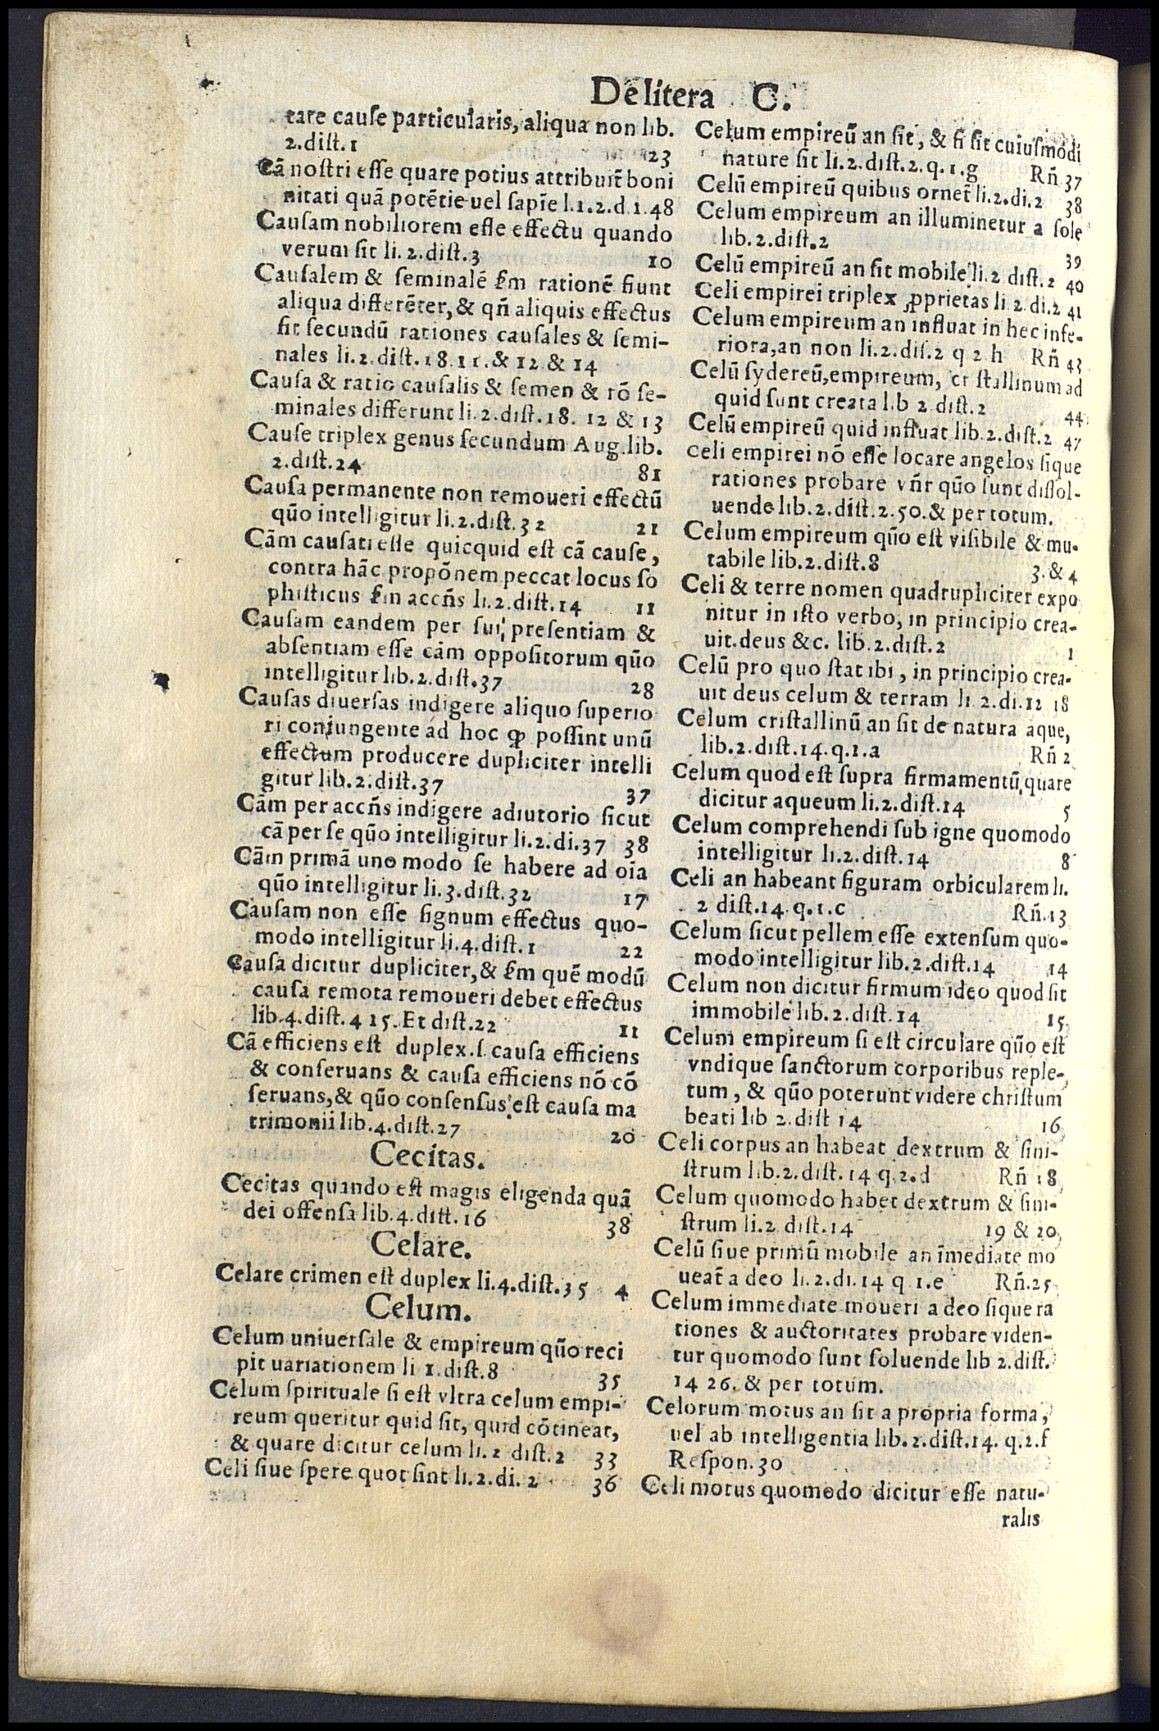 De litera C.
tare cause particularis, aliqua non lib.
2.dist.1 23
Cā nostri esse quare potius attribuit̄ boni
nitati quā potētie uel sapīe l.1.2.d.1.48
Causam nobiliorem esse effectu quando
verum sit li.2.dist.3 10
Causalem & seminalē ſm rationē fiunt
aliqua differēter, & qñ aliquis effectus
sit secundū rationes causales & semi-
nales li.2.dist.18.11.& 12 & 14
Causa & ratio causalis & semen & rō se-
minales differunt li.2.dist.18. 12 & 13
Cause triplex genus secundum Aug.lib.
2.dist.24 81
Causa permanente non remoueri effectū
quō intelligitur li.2.dist.32 21
Cām causati esse quicquid est cā cause,
contra hāc propōnem peccat locus so
phisticus ſm accñs li.2.dist.14 11
Causam eandem per sui presentiam &
absentiam esse cām oppositorum quō
intelligitur lib.2.dist.37 28
Causas diuersas indigere aliquo superio
ri coniungente ad hoc ꝙ possint unū
effectum producere dupliciter intelli
gitur lib.2.dist.37 37
Cām per accñs indigere adiutorio sicut
cā per se quō intelligitur li.2.di.37 38
Cām primā uno modo se habere ad oīa
quō intelligitur li.3.dist.32 17
Causam non esse signum effectus quo-
modo intelligitur li.4.dist.1 22
Causa dicitur dupliciter, & ſm quē modū
causa remota remoueri debet effectus
lib.4.dist.4 15.Et dist.22 11
Cā efficiens est duplex.s.causa efficiens
& conseruans & causa efficiens nō cō
seruans,& quō consensus est causa ma
trimonii lib.4.dist.27 20
Cecitas.
Cecitas quando est magis eligenda quā
dei offensa lib.4.dist.16 38
Celare.
Celare crimen est duplex li.4.dist.35 4
Celum.
Celum uniuersale & empireum quō reci
pit uariationem li 1.dist.8 35
Celum spirituale si est vltra celum empi-
reum queritur quid sit, quid cōtineat,
& quare dicitur celum li.2 dist.2 33
Celi siue spere quot sint li.2.di.2 36
Celum empireū an sit, & si sit cuiusmodi
nature sit li.2.dist.2.q.1.g Rñ 37
Celū empireū quibus ornet̄ li.2.di.2 38
Celum empireum an illuminetur a sole
lib.2.dist.2 39
Celū empireū an sit mobile li.2 dist.2 40
Celi empirei triplex ꝓprietas li 2.di.2 41
Celum empireum an influat in hec infe-
riora,an non li.2.dis.2 q 2 h Rñ 43
Celū sydereū,empireum, cr stallinum ad
quid sunt creata lib 2 dist.2 44
Celū empireū quid influat lib.2.dist.2 47
celi empirei nō esse locare angelos sique
rationes probare vñr quō sunt dissol-
uende lib.2.dist.2.50.& per totum.
Celum empireum quō est visibile & mu-
tabile lib.2.dist.8 3.&4
Celi & terre nomen quadrupliciter expo
nitur in isto verbo, in principio crea-
uit.deus &c. lib.2.dist.2 1
Celū pro quo stat ibi, in principio crea-
uit deus celum & terram li 2.di.12 18
Celum cristallinū an sit de natura aque,
lib.2.dist.14.q.1.a Rñ 2
Celum quod est supra firmamentū quare
dicitur aqueum li.2.dist.14 5
Celum comprehendi sub igne quomodo
intelligitur li.2.dist.14 8
Celi an habeant figuram orbicularem li.
2 dist.14.q.1.c Rñ.13
Celum sicut pellem esse extensum quo-
modo intelligitur lib.2.dist.14 14
Celum non dicitur firmum ideo quod sit
immobile lib.2.dist.14 15
Celum empireum si est circulare quō est
vndique sanctorum corporibus reple-
tum, & quō poterunt videre christum
beati lib 2.dist 14 16
Celi corpus an habeat dextrum & sini-
strum lib.2.dist.14 q.2.d Rñ 18
Celum quomodo habet dextrum & sini-
strum li.2 dist.14 19 & 20
Celū siue primū mobile an īmediate mo
ueat̄ a deo li.2.di.14 q 1.e Rñ.25
Celum immediate moueri a deo sique ra
tiones & auctoritates probare viden-
tur quomodo sunt soluende lib 2.dist.
14 26.& per totum.
Celorum motus an sit a propria forma,
uel ab intelligentia lib.2.dist.14. q.2.f
Respon.30
Celi motus quomodo dicitur esse natu-
ralis